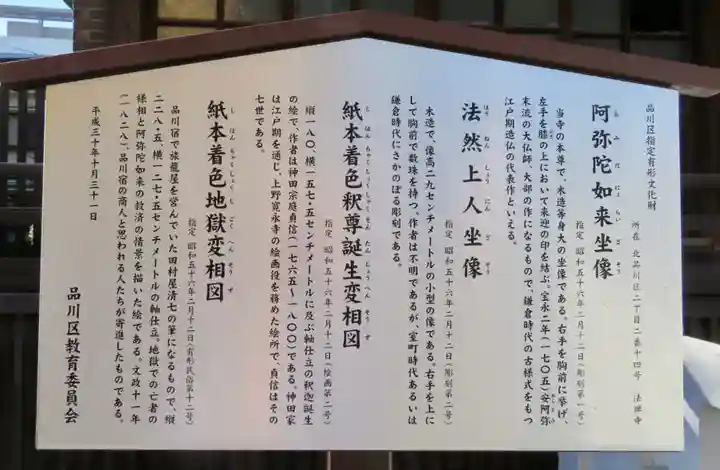 品川区指定有形文化財
所在 北品川区二丁目二番十四号 法禅寺
阿弥陀如来坐像
あみだにょらいざぞう
指定 昭和五十六年二月十二日(彫刻第一号)
当寺の本尊で、木造等身大の坐像である。右手を胸前に挙げ、
左手を膝の上において来迎の印を結ぶ。宝永二年(一七〇五)安阿弥
末流の大仏師、大部の作になるもので、鎌倉時代の古様式をもつ
江戸期造仏の代表作といえる。
法然上人坐像
ほうねんしょうにんざぞう
指定 昭和五十六年二月十二日(彫刻第二号)
木造で、像高二九センチメートルの小型の像である。右手を上に
して胸前で数珠を持つ。作者は不明であるが、室町時代あるいは
鎌倉時代にさかのぼる彫刻である。
紙本着色釈尊誕生変相図
しほんちゃくしょくしゃくそんたんじょうへんそうず
指定 昭和五十六年二月十二日(絵画第二号)
縦一八〇、横一五七・五センチメートルに及ぶ軸仕立の釈迦誕生
の絵で、作者は神田宗庭貞信(一七六五〜一八〇〇)である。神田家
は江戸期を通じ、上野寛永寺の絵画役を務めた絵所で、貞信はその
七世である。
紙本着色地獄変相図
しほんちゃくしょくじごくへんそうず
指定 昭和五十六年二月十二日(有形民俗第十二号)
品川宿で旅籠屋を営んでいた田村屋清七の筆になるもので、縦
二二八・五、横一二七・五センチメートルの軸仕立。地獄での亡者の
様相と阿弥陀如来の救済の情景を描いた絵である。文政十一年
(一八二八)、品川宿の商人と思われる人たちが寄進したものである。
平成三十年十月三十一日
品川区教育委員会